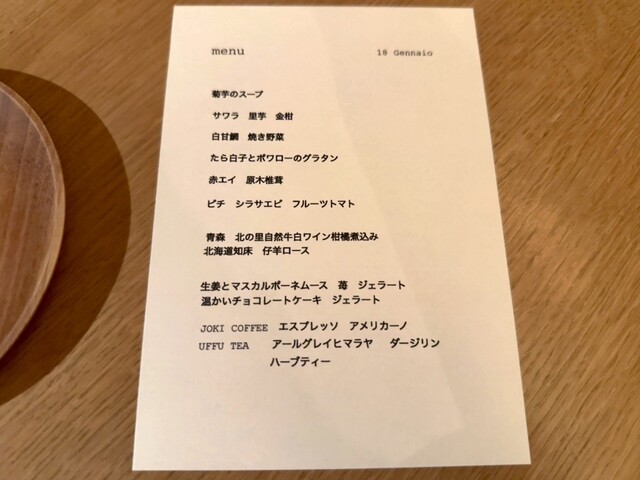 menu 18 Gennaio
菊芋のスープ
サワラ 里芋 金柑
白甘鯛 焼き野菜
たら白子とポワローのグラタン
赤エイ 原木椎茸
ピチ シラサエビ フルーツトマト
青森 北の里自然牛白ワイン柑橘煮込み
北海道知床 仔羊ロース
生姜とマスカルポーネムース 苺 ジェラート
温かいチョコレートケーキ ジェラート
JOKI COFFEE エスプレッソ アメリカーノ
UFFU TEA アールグレイヒマラヤ ダージリン
ハーブティー